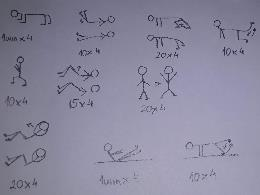 1min x 4
10 x 4
20 x 4
10 x 4
10 x 4
15 x 4
20 x 4
20 x 4
1min x 4
10 x 4